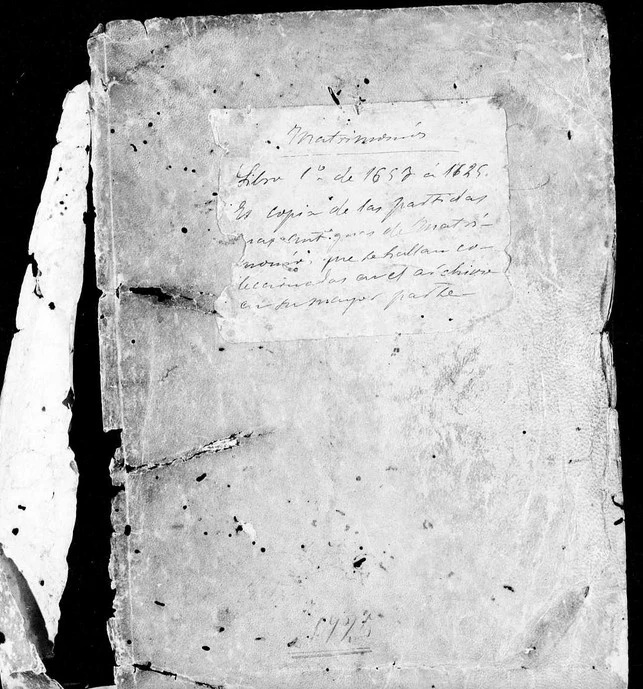 Matrimonios
Libro 1º de 1657 á 1625.
Es copia de las partidas
mas antiguas de Matri-
monio que se hallan co-
leccionadas en el archivo
en su mayor parte